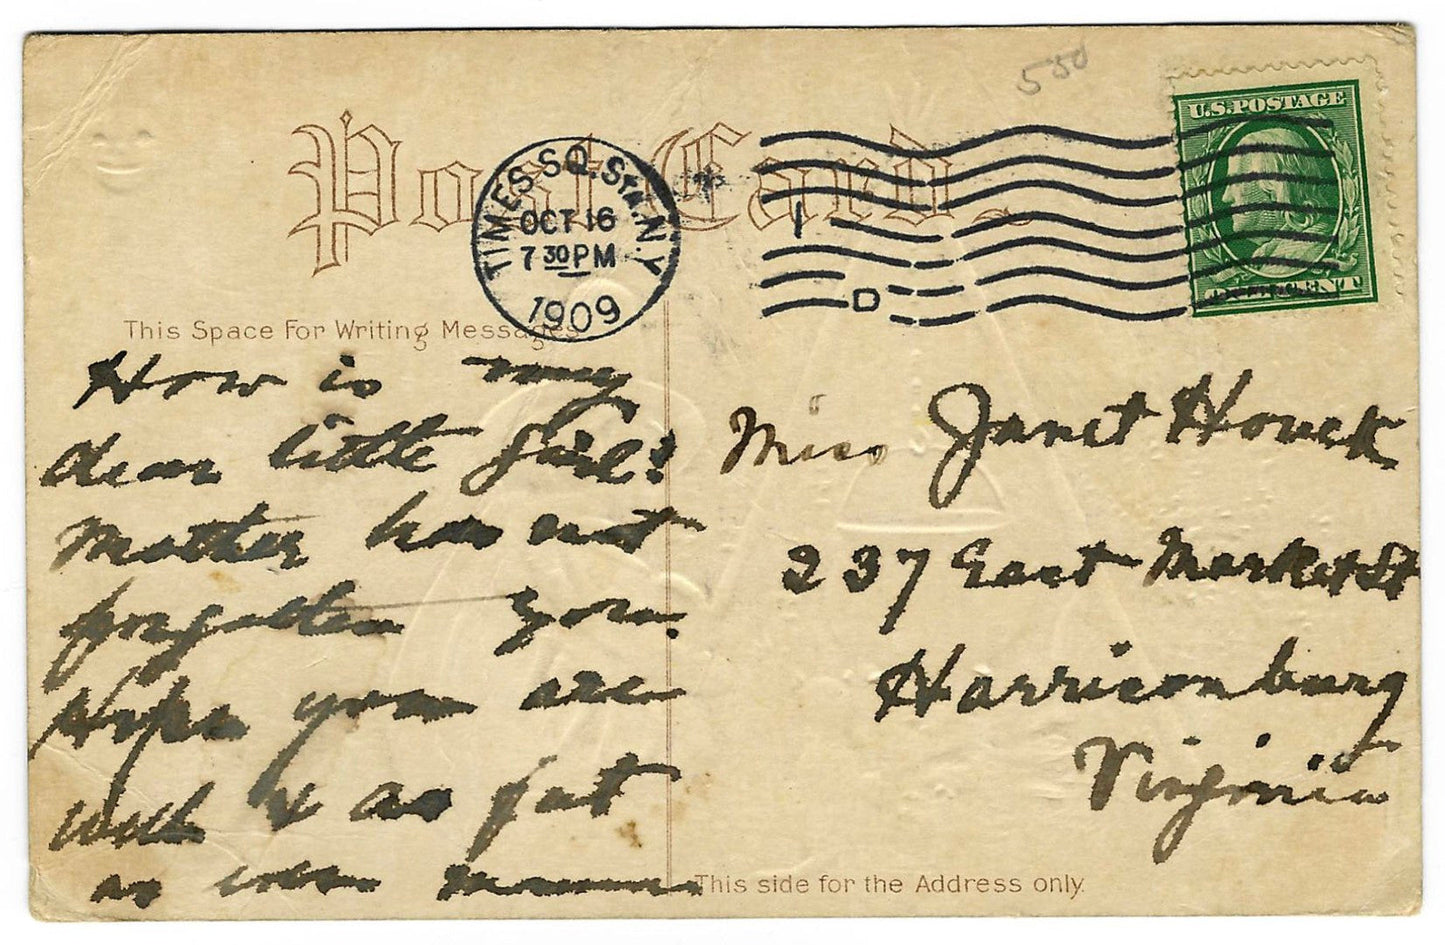 550
U.S.POSTAGE
Post Card.
TIMES SQ. STA. N.Y.
OCT 16
7 30 PM
1909
1
D
ONE CENT
This Space For Writing Messages
How is my
dear little girl?
Mother has not
forgotten you.
Hope you are
well & as fat
as ever
Miss Janet Houck
237 East Market St
Harrisonburg
Virginia
This side for the Address only.